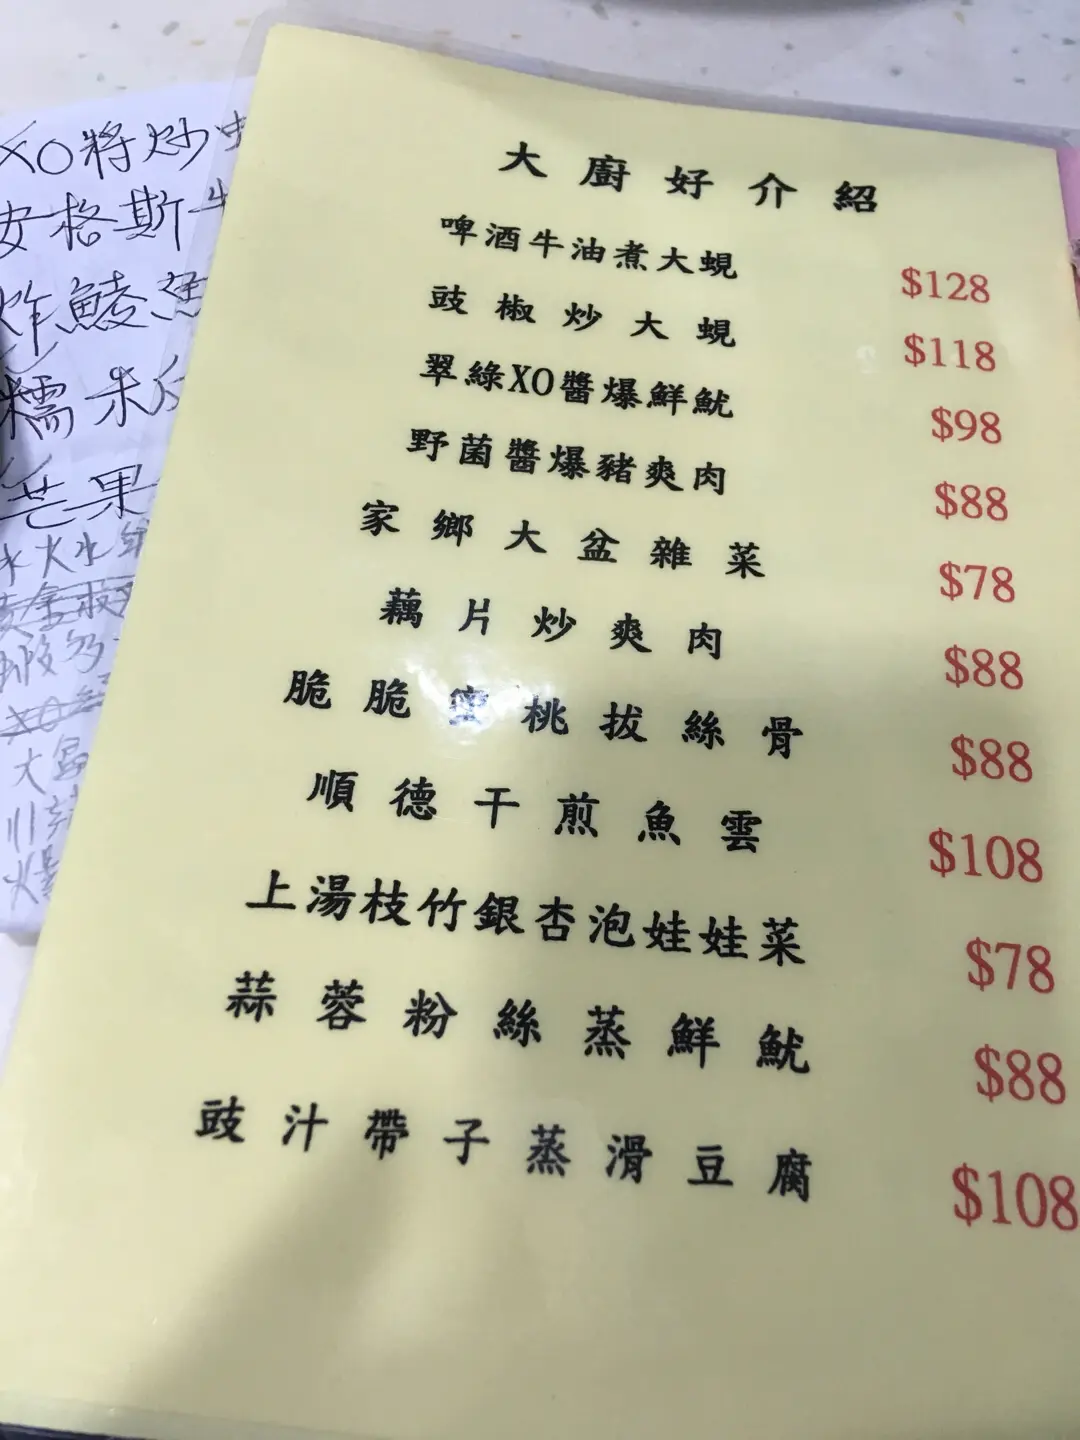 大廚好介紹
啤酒牛油煮大蜆 $128
豉椒炒大蜆 $118
翠綠XO醬爆鮮魷 $98
野菌醬爆豬爽肉 $88
家鄉大盆雜菜 $78
藕片炒爽肉 $88
脆脆蜜桃拔絲骨 $88
順德干煎魚雲 $108
上湯枝竹銀杏泡娃娃菜 $78
蒜蓉粉絲蒸鮮魷 $88
豉汁帶子蒸滑豆腐 $108
XO將炒
安格斯牛
炸鯪魚
糯米
芒果